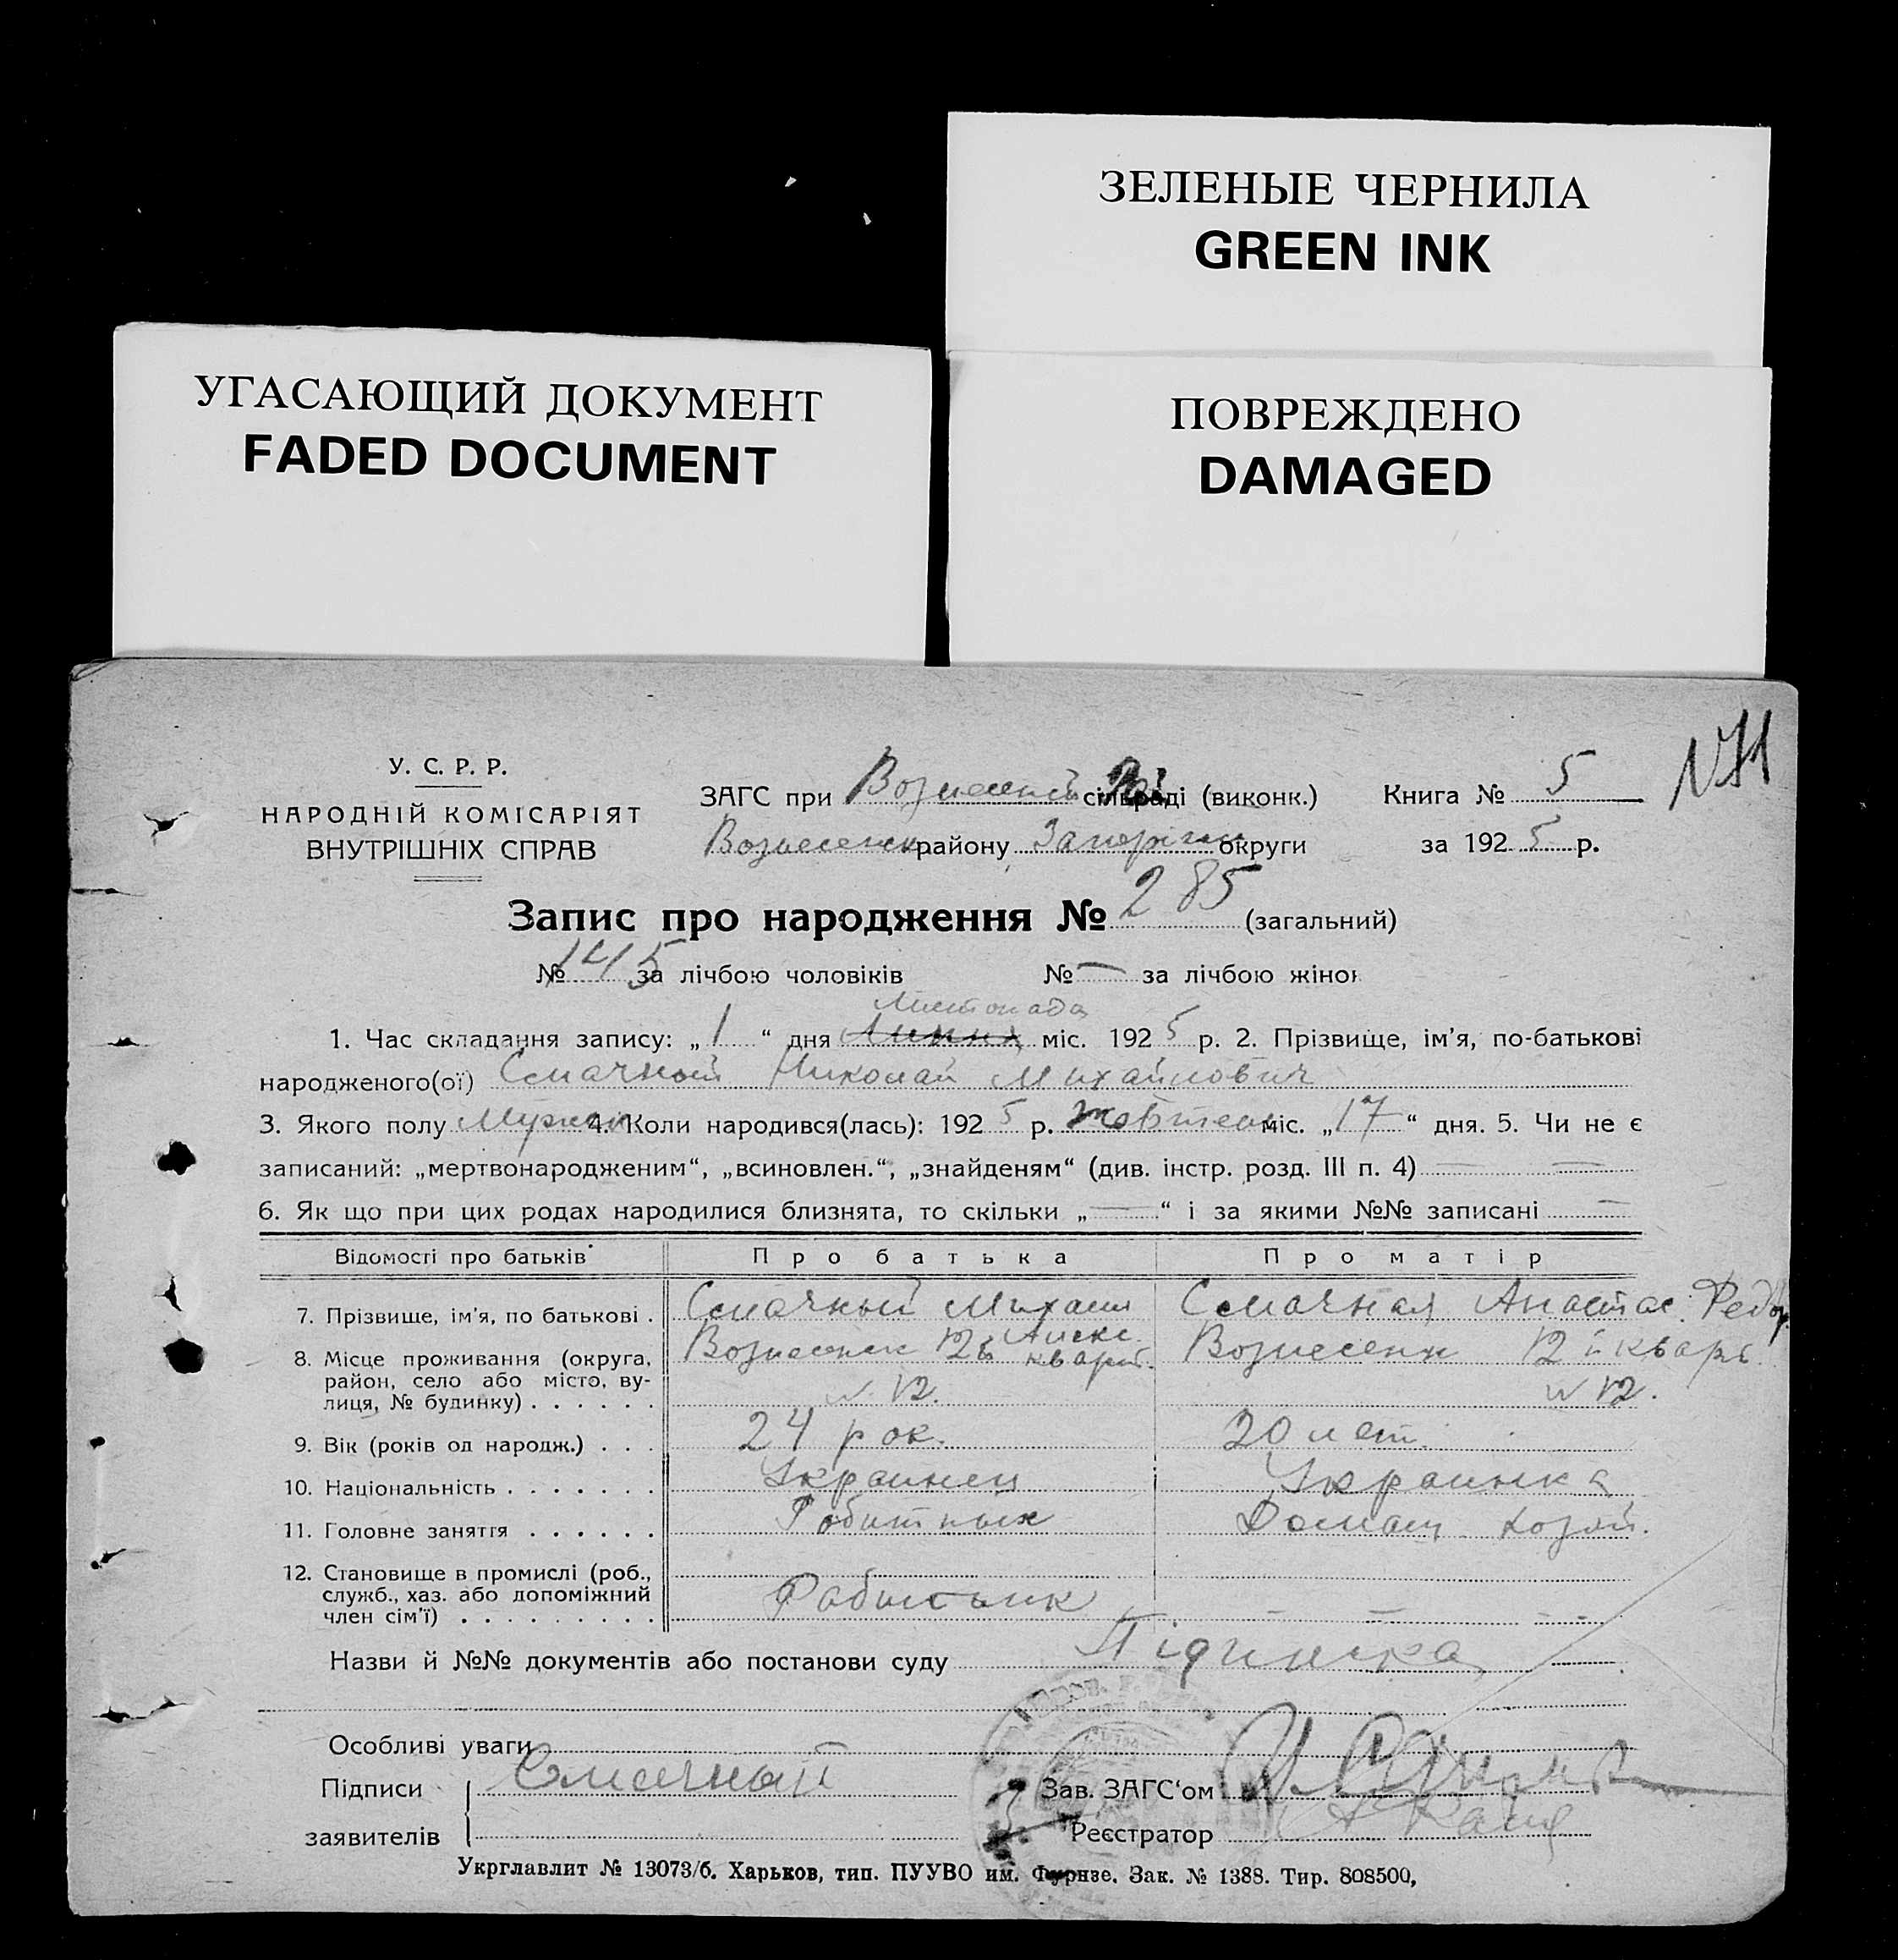 ЗЕЛЕНЫЕ ЧЕРНИЛА
GREEN INK
УГАСАЮЩИЙ ДОКУМЕНТ
FADED DOCUMENT
ПОВРЕЖДЕНО
DAMAGED
У. С. Р. Р.
НАРОДНІЙ КОМІСАРІЯТ
ВНУТРІШНІХ СПРАВ
ЗАГС при Вознесенськ сільраді (виконк.) Книга № 5
Вознесенк району Запоріжж округи за 1925 р.
Запис про народження № 285 (загальний)
№ 145 за лічбою чоловіків № — за лічбою жінок
Листопада
1. Час складання запису: „1“ дня міс. 1925 р. 2. Прізвище, ім'я, по-батькові
народженого(ої) Смачный Николай Михайлович
3. Якого полу Мужск 4. Коли народився(лась): 1925 р. жовтень міс. „17“ дня. 5. Чи не є
записаний: „мертвонародженим“, „всиновлен.“, „знайденям“ (див. інстр. розд. III п. 4) — —
6. Як що при цих родах народилися близнята, то скільки „—“ і за якими №№ записані —
Відомості про батьків Про батька Про матір
7. Прізвище, ім'я, по батькові . Смачный Михаил Алекс. Смачная Анастас. Федор.
8. Місце проживання (округа, район, село або місто, вулиця, № будинку) . . . . . . Вознесенк 12й кварт. № 12. Вознесенк 12й кварт. № 12.
9. Вік (років од народж.) . . . 24 рок. 20 лет.
10. Національність . . . . . . . Украинец Украинка
11. Головне заняття . . . . . . Робитнык Домаш. хозяй.
12. Становище в промислі (роб., служб., хаз. або допоміжний член сім'ї) . . . . . . . . . Робитник — — — -
Назви й №№ документів або постанови суду
Особливі уваги
Підписи Смачный Зав. ЗАГС'ом
заявителів Реєстратор
Укрглавлит № 13073/б. Харьков, тип. ПУУВО им. Фрунзе. Зак. № 1388. Тир. 808500,